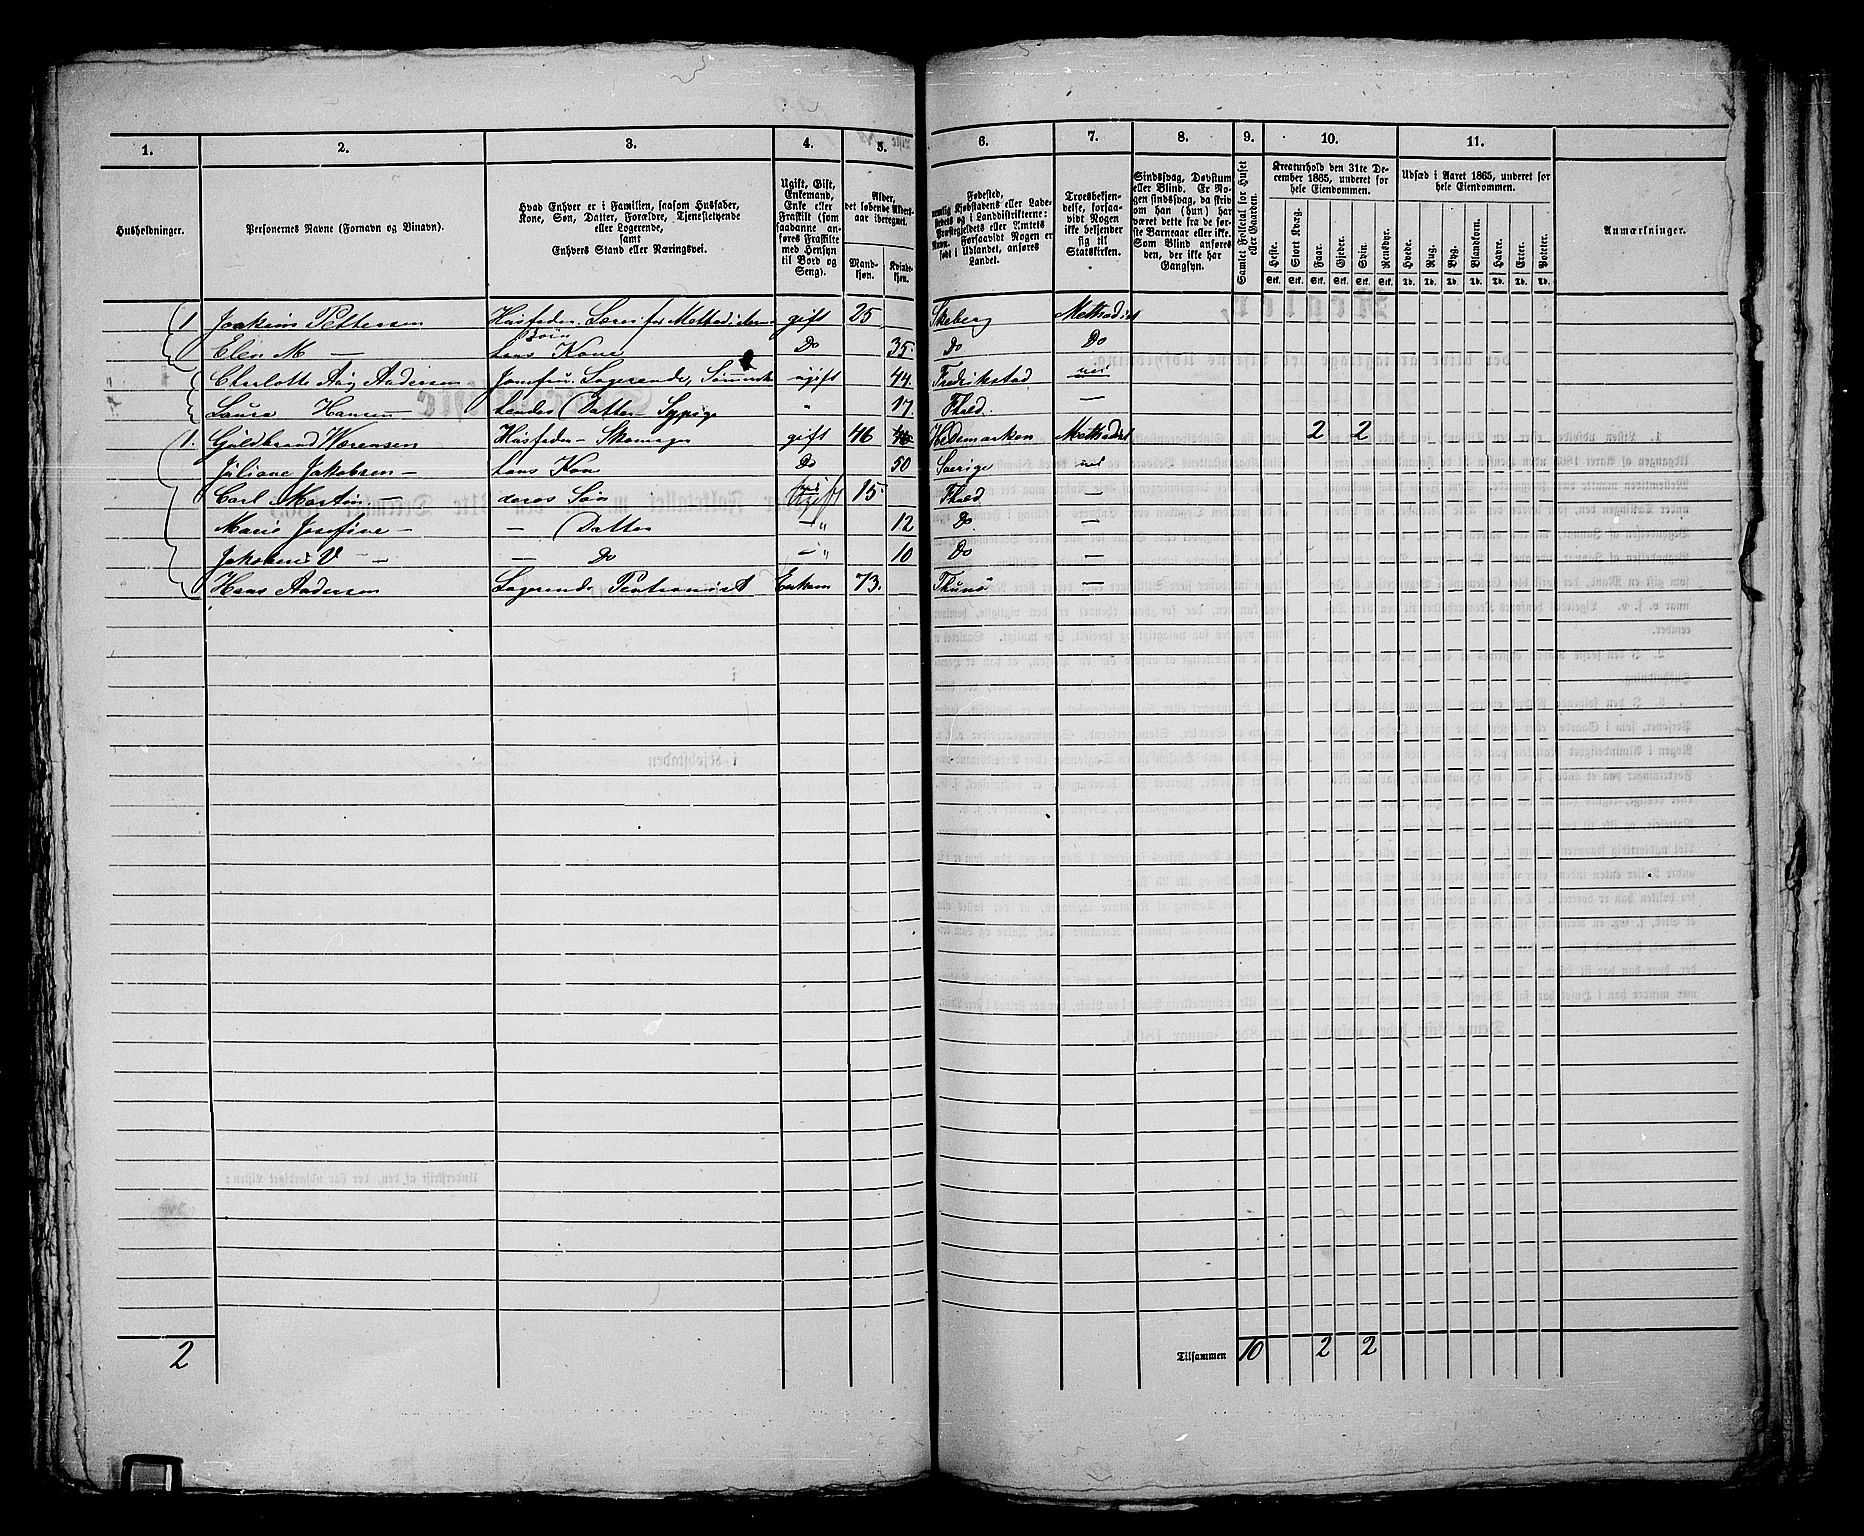 1. 2. 3. 4. 5. 6. 7. 8. 9. 10. 11.
Husholdninger.
Personernes Navne (Fornavn og Binavn).
Hvad Enhver er i Familien, saasom Husfader, Kone, Søn, Datter, Forældre, Tjenestetyende eller Logerende, samt Enhvers Stand eller Næringsvei.
Ugift, Gift, Enkemand, Enke eller Fraskilt (som saadanne anføres Fraskilte med Hensyn til Bord og Seng).
Alder, det løbende Aldersaar iberegnet.
Mandkjøn. Kvindekjøn.
Fødested, nemlig Kjøbstadens eller Ladestedets og i Landdistrikterne: Præstegjeldets eller Amtets Navn. Forsaavidt Nogen er født i Udlandet, anføres Landet.
Troesbekjendelse, forsaavidt Nogen ikke bekjender sig til Statskirken.
Sindssvag, Døvstum eller Blind. Er Nogen sindssvag, da skrives om han (hun) har været dette fra de første Barneaar eller ikke. Som Blind anføres den, der ikke har Gangsyn.
Samlet Folketal for Huset eller Gaarden.
Kreaturhold den 31te December 1865, underet for hele Eiendommen.
Heste. Stort Kvæg. Faar. Gjeder. Svin. Rensdyr.
Stk. Stk. Stk. Stk. Stk. Stk.
Udsæd i Aaret 1865, underet for hele Eiendommen.
Hvede. Rug. Byg. Blandkorn. Havre. Erter. Poteter.
Td. Td. Td. Td. Td. Td. Td.
Anmærkninger.
1 Joakim Pettersen Husfader. Lærer for Methodisterne gift 25 Skeberg Methodist
Elen M — hans Kone Do 35 Do Do
Charlotte Aug Andersen Jomfru. Logerende, ugift 44 Fredrikstad nei
Laura Hansen — hendes Datter Sypige " 17. Fhald. —
1. Guldbrand Hansen Husfader Skomager gift 46 Hedemarken Methodist 2 2
Juliane Jakobsen — hans Kone Do 50 Sverige nei
Carl Martin — deres Søn ugift 15 Fhald —
Marie Josefine — — Datter — " 12 Do —
Jakobine V — — Do — " 10 Do —
Hans Andersen Logerende Enkem 73. Thunø —
2 Tilsammen 10 2 2